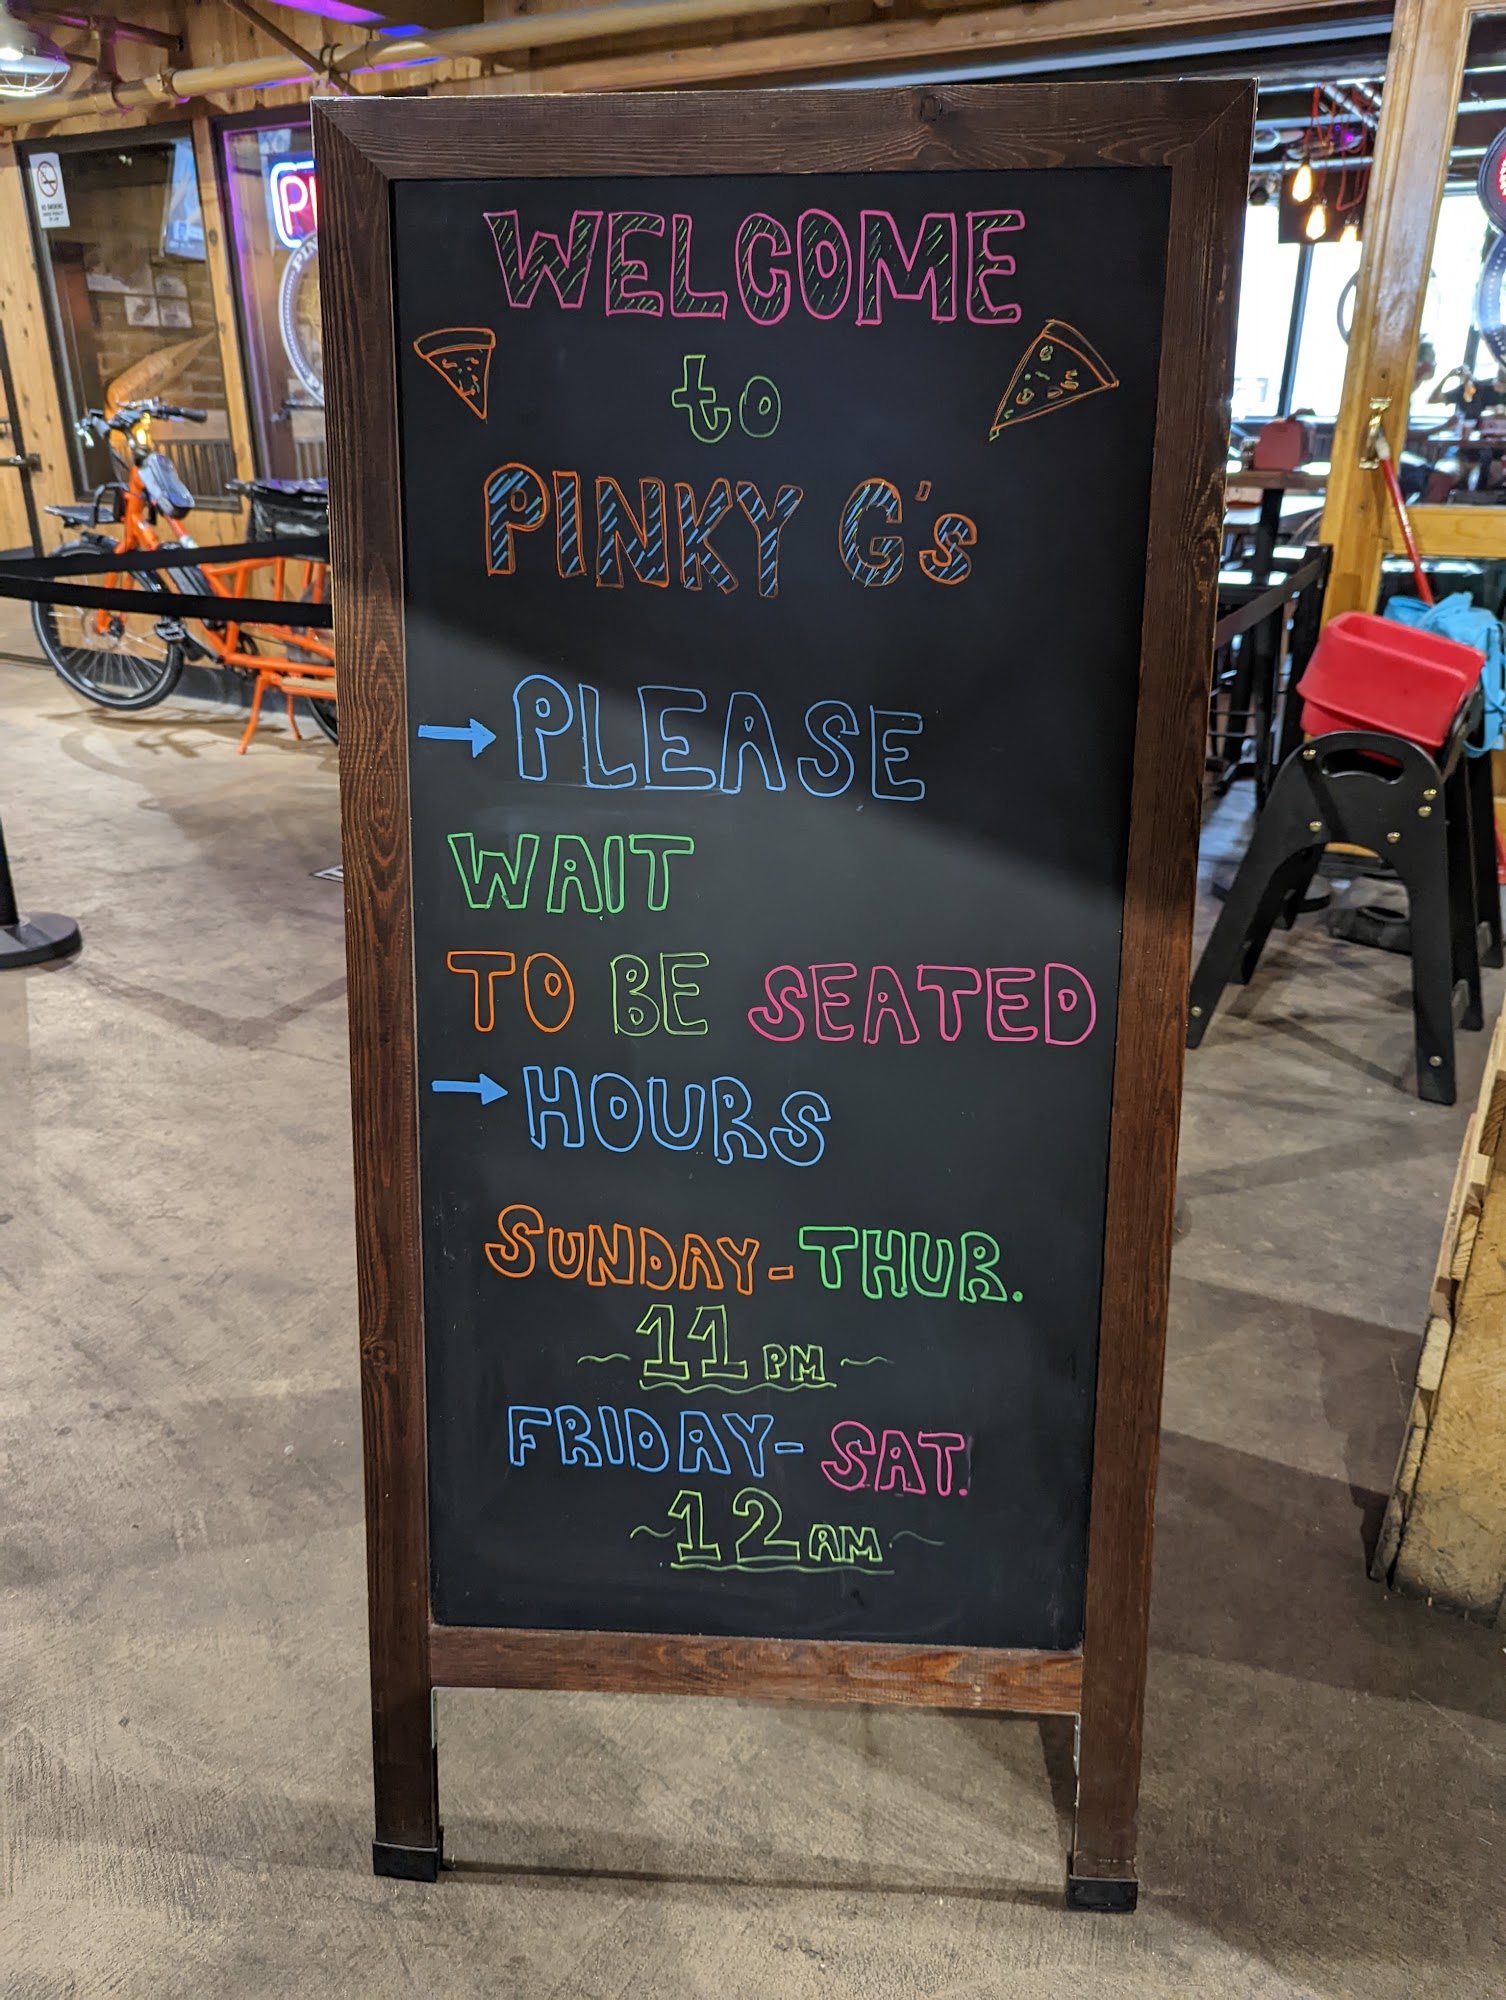 WELCOME
to
PINKY G's
→ PLEASE
WAIT
TO BE SEATED
→ HOURS
SUNDAY - THUR.
~ 11 PM ~
FRIDAY - SAT.
~ 12 AM ~
NO SMOKING